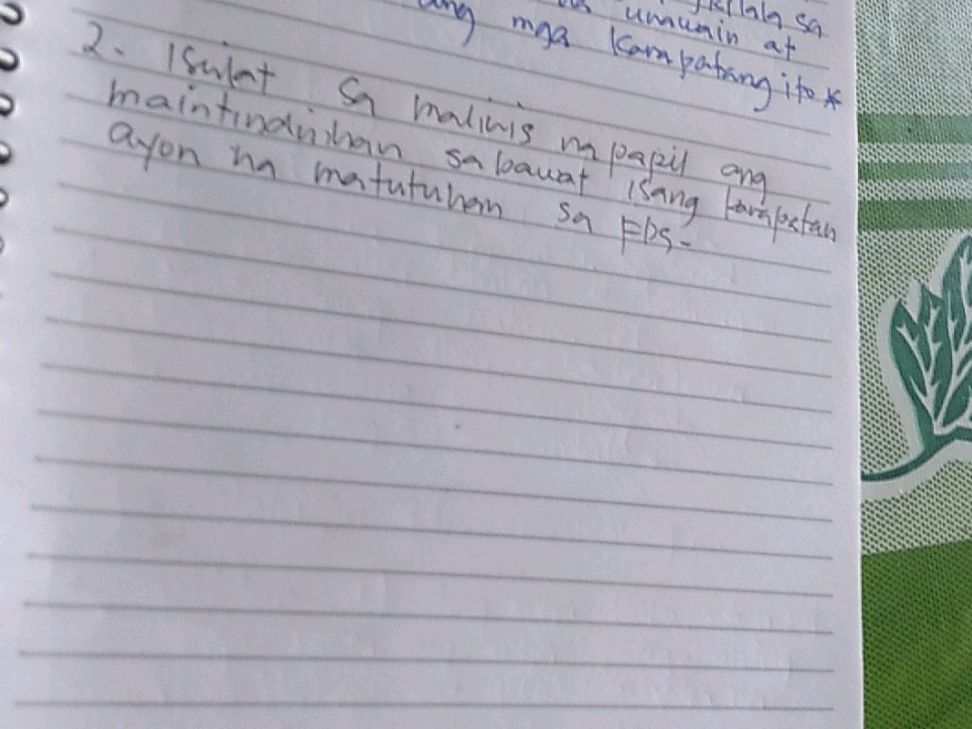 sa
umunin at
ang mga karapatang ito *
2. Isulat sa malinis na papil ang
maintindihan sa bawat isang karapatan
ayon na matutuhan sa FDS-